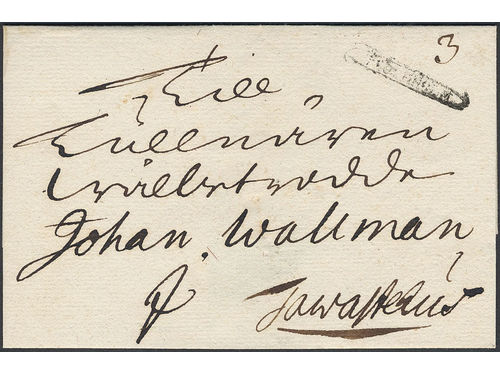 3
Till
Tullnären
Wälbetrodde
Johan Wallman
Tawastehus